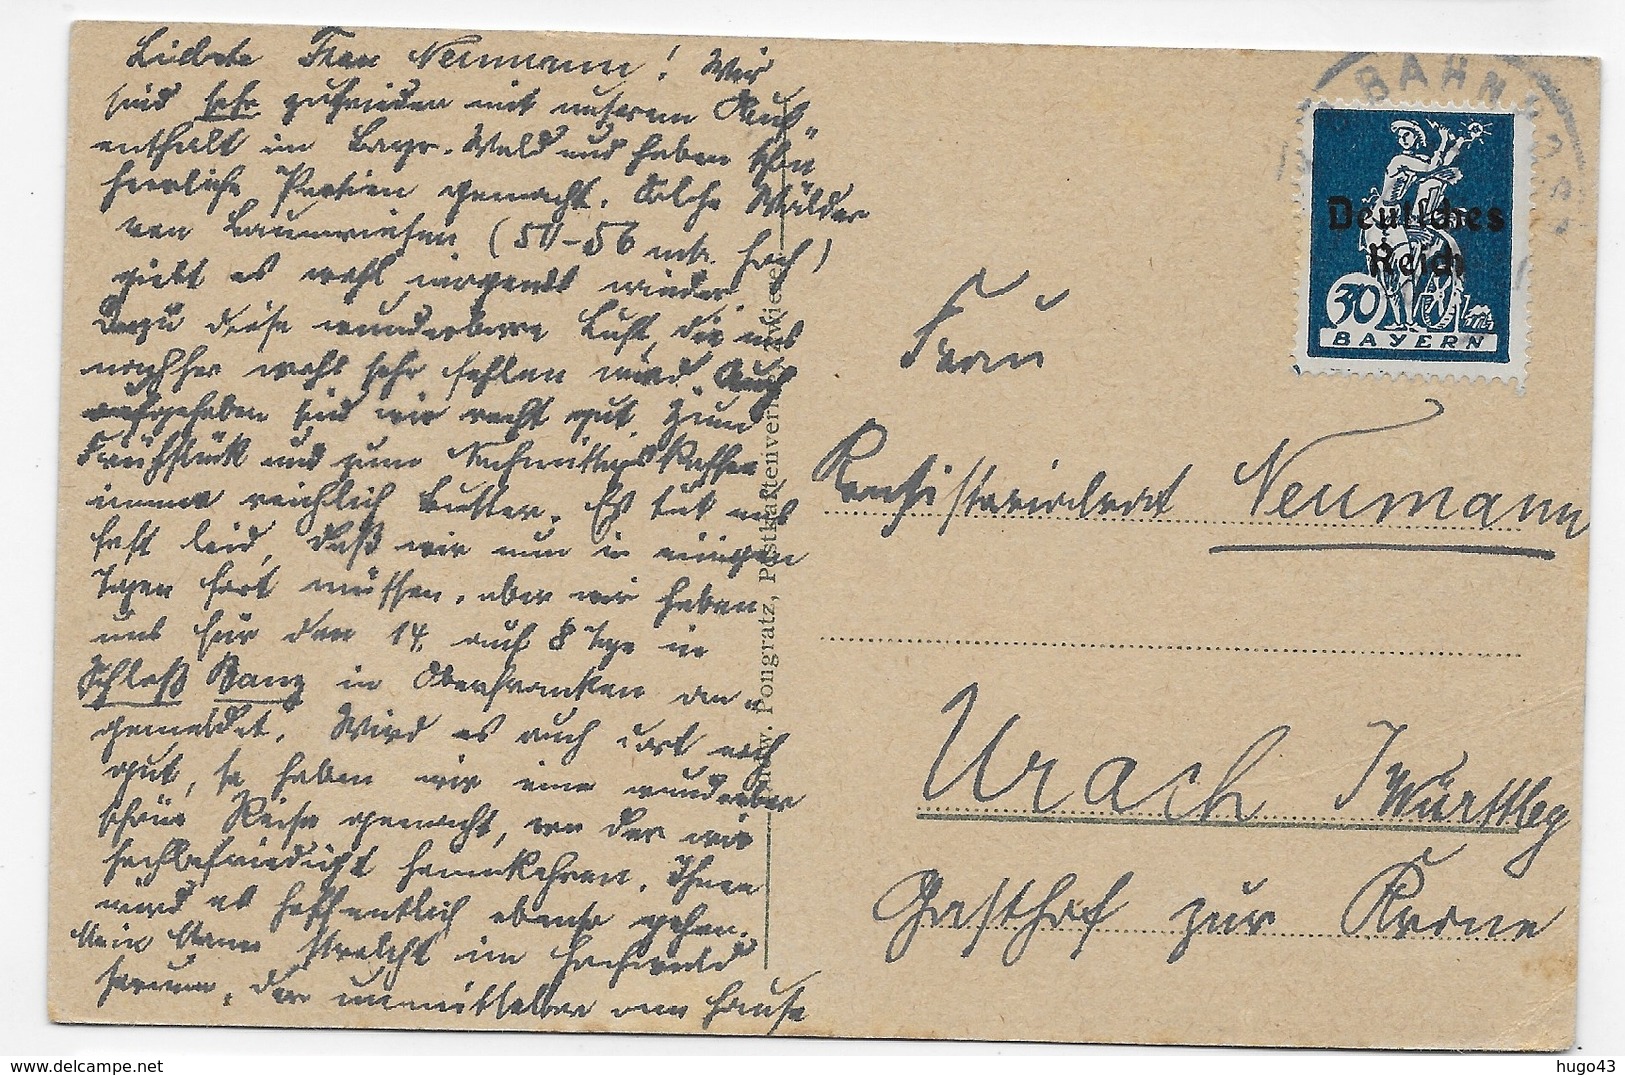 Liebste Frau Neumann! Wir
sind sehr zufrieden mit unserem Auf-
enthalt im Bayr. Wald und haben schon
herrliche Partien gemacht. Solche Wälder
von Baumriesen (54-56 mtr. hoch)
giebt es wohl nirgends wieder.
Dazu diese wunderbare Luft, die uns
nachher wohl sehr fehlen wird. Auch
aufgehoben sind wir recht gut. Zum
Frühstück und zum Nachmittagskaffee
immer reichlich Butter. Es tut uns
fast leid, daß wir nun in einigen
Tagen fort müssen, aber wir haben
uns für den 14. auf 8 Tage in
Schloß Banz in Oberfranken an-
gemeldet. Wird es auch dort noch
gut, so haben wir eine wunderbar
schöne Reise gemacht, von der wir
hochbefriedigt heimkehren. Ihnen
wird es hoffentlich ebenso gehen.
Mein Mann streicht im Hochwald
herum, der unmittelbar am Hause
Pongratz, Postkartenverl. Zwiesel
BAHN
Deutsches
Reich
30
BAYERN
Frau
Neumann
Urach / Württbg
Gasthof zur Krone
https://www.delcampe.net
hugo43